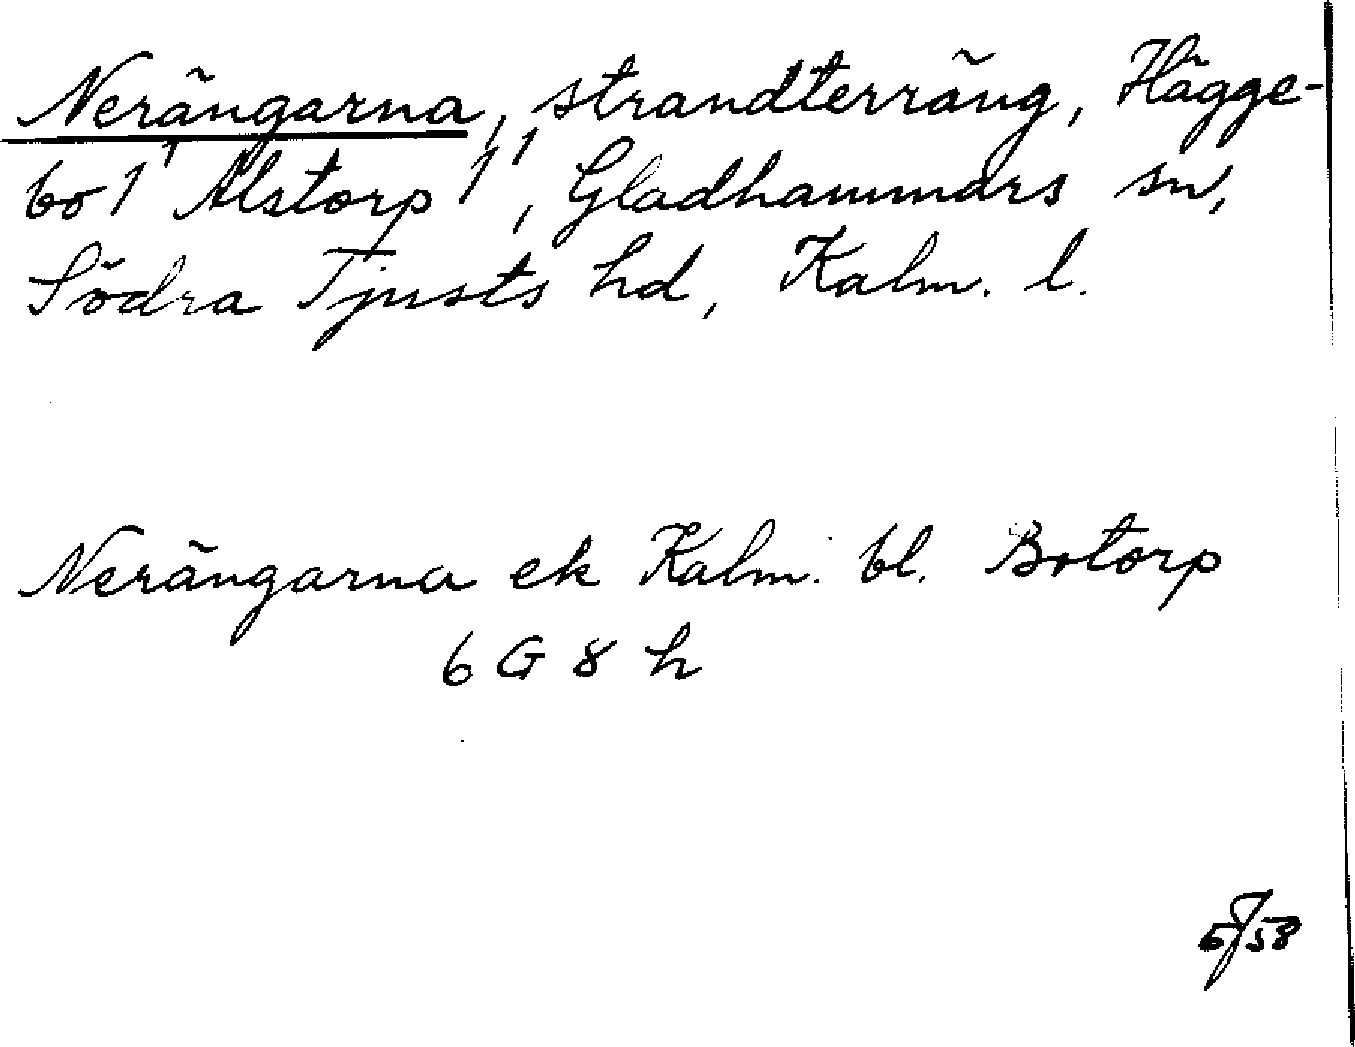 Nerängarna, strandterräng, Hägge-
bo 1¹ Alstorp 1¹, Gladhammars sn,
Södra Tjusts hd, Kalm. l.
Nerängarna ek Kalm. bl. Botorp
6 G 8 h